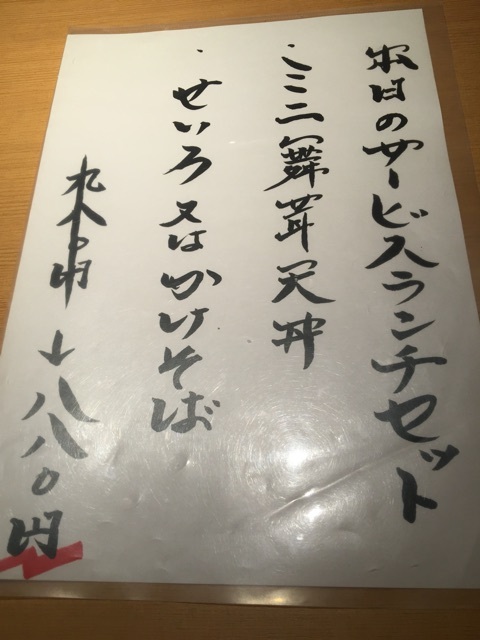 本日のサービスランチセット
・ミニ舞茸天丼
・せいろ又はかけそば
九八〇円→八八〇円